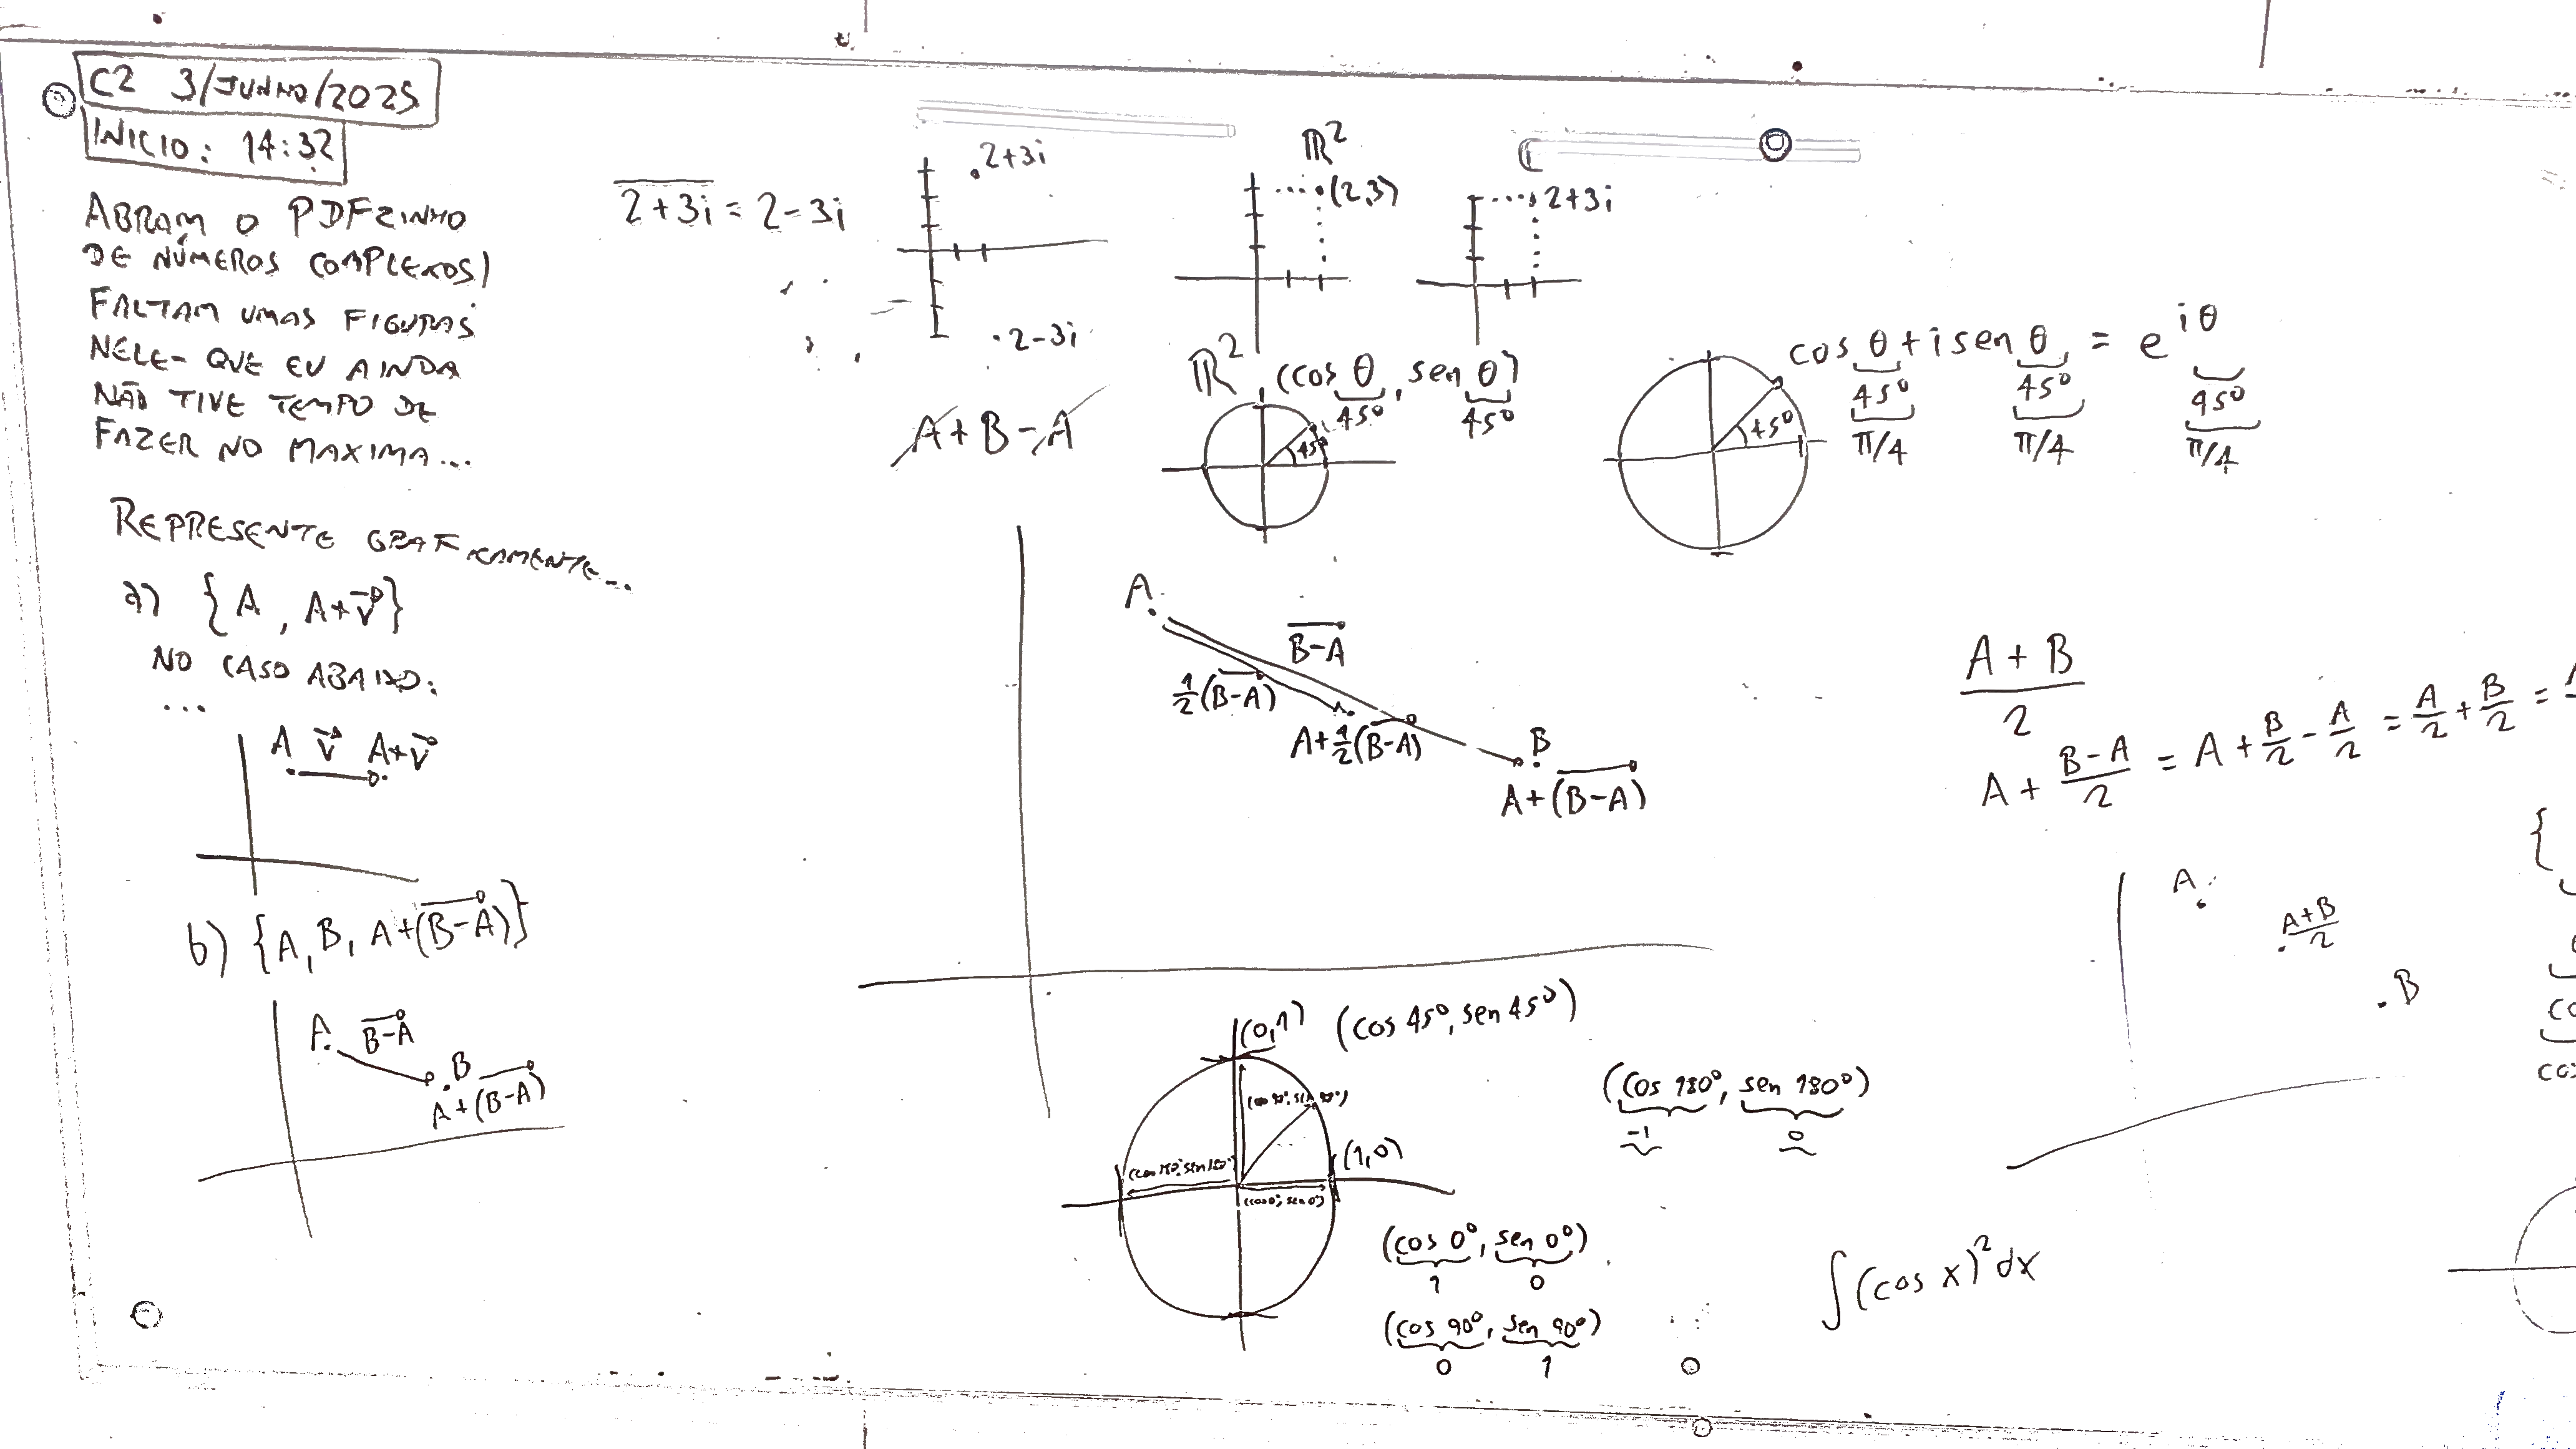 C2 3/JUNHO/2025
INICIO: 14:32
ABRAM O PDFZINHO
DE NÚMEROS COMPLEXOS!
FALTAM UMAS FIGURAS
NELE- QUE EU AINDA
NÃO TIVE TEMPO DE
FAZER NO MAXIMA...
REPRESENTE GRAFICAMENTE...
a) {A, A+v⃗}
NO CASO ABAIXO:
...
A v⃗ A+v⃗
b) {A, B, A+(B-A)}
A B-A
B
A+(B-A)
2+3i = 2-3i
2+3i
2-3i
A+B-A
ℝ²
(2,3)
ℂ
2+3i
ℝ²
(cos θ, sen θ)
45° 45°
45°
cos θ + i sen θ = e^{iθ}
45° 45° 45°
π/4 π/4 π/4
45°
A
B-A
½(B-A)
A+½(B-A)
B
A+(B-A)
(0,1) (cos 45°, sen 45°)
(cos 90°, sen 90°)
(cos 180°, sen 180°)
(1,0)
(cos 0°, sen 0°)
(cos 180°, sen 180°)
-1 0
(cos 0°, sen 0°)
1 0
(cos 90°, sen 90°)
0 1
A+B
2
A + (B-A)/2 = A + B/2 - A/2 = A/2 + B/2 =
A
A+B
2
B
∫(cos x)² dx
{